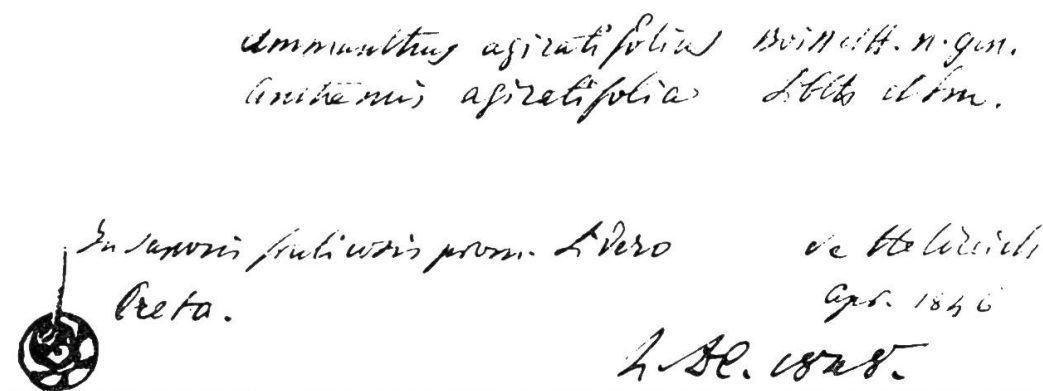 Ammanthus ageratifolius Boiss et H. n. gen.
Anthemis ageratifolia Sibth et Sm.
In saxosis fruticosis prom. Sidero
Creta.
de Heldreich
Apr. 1846
h. DC. 1848.